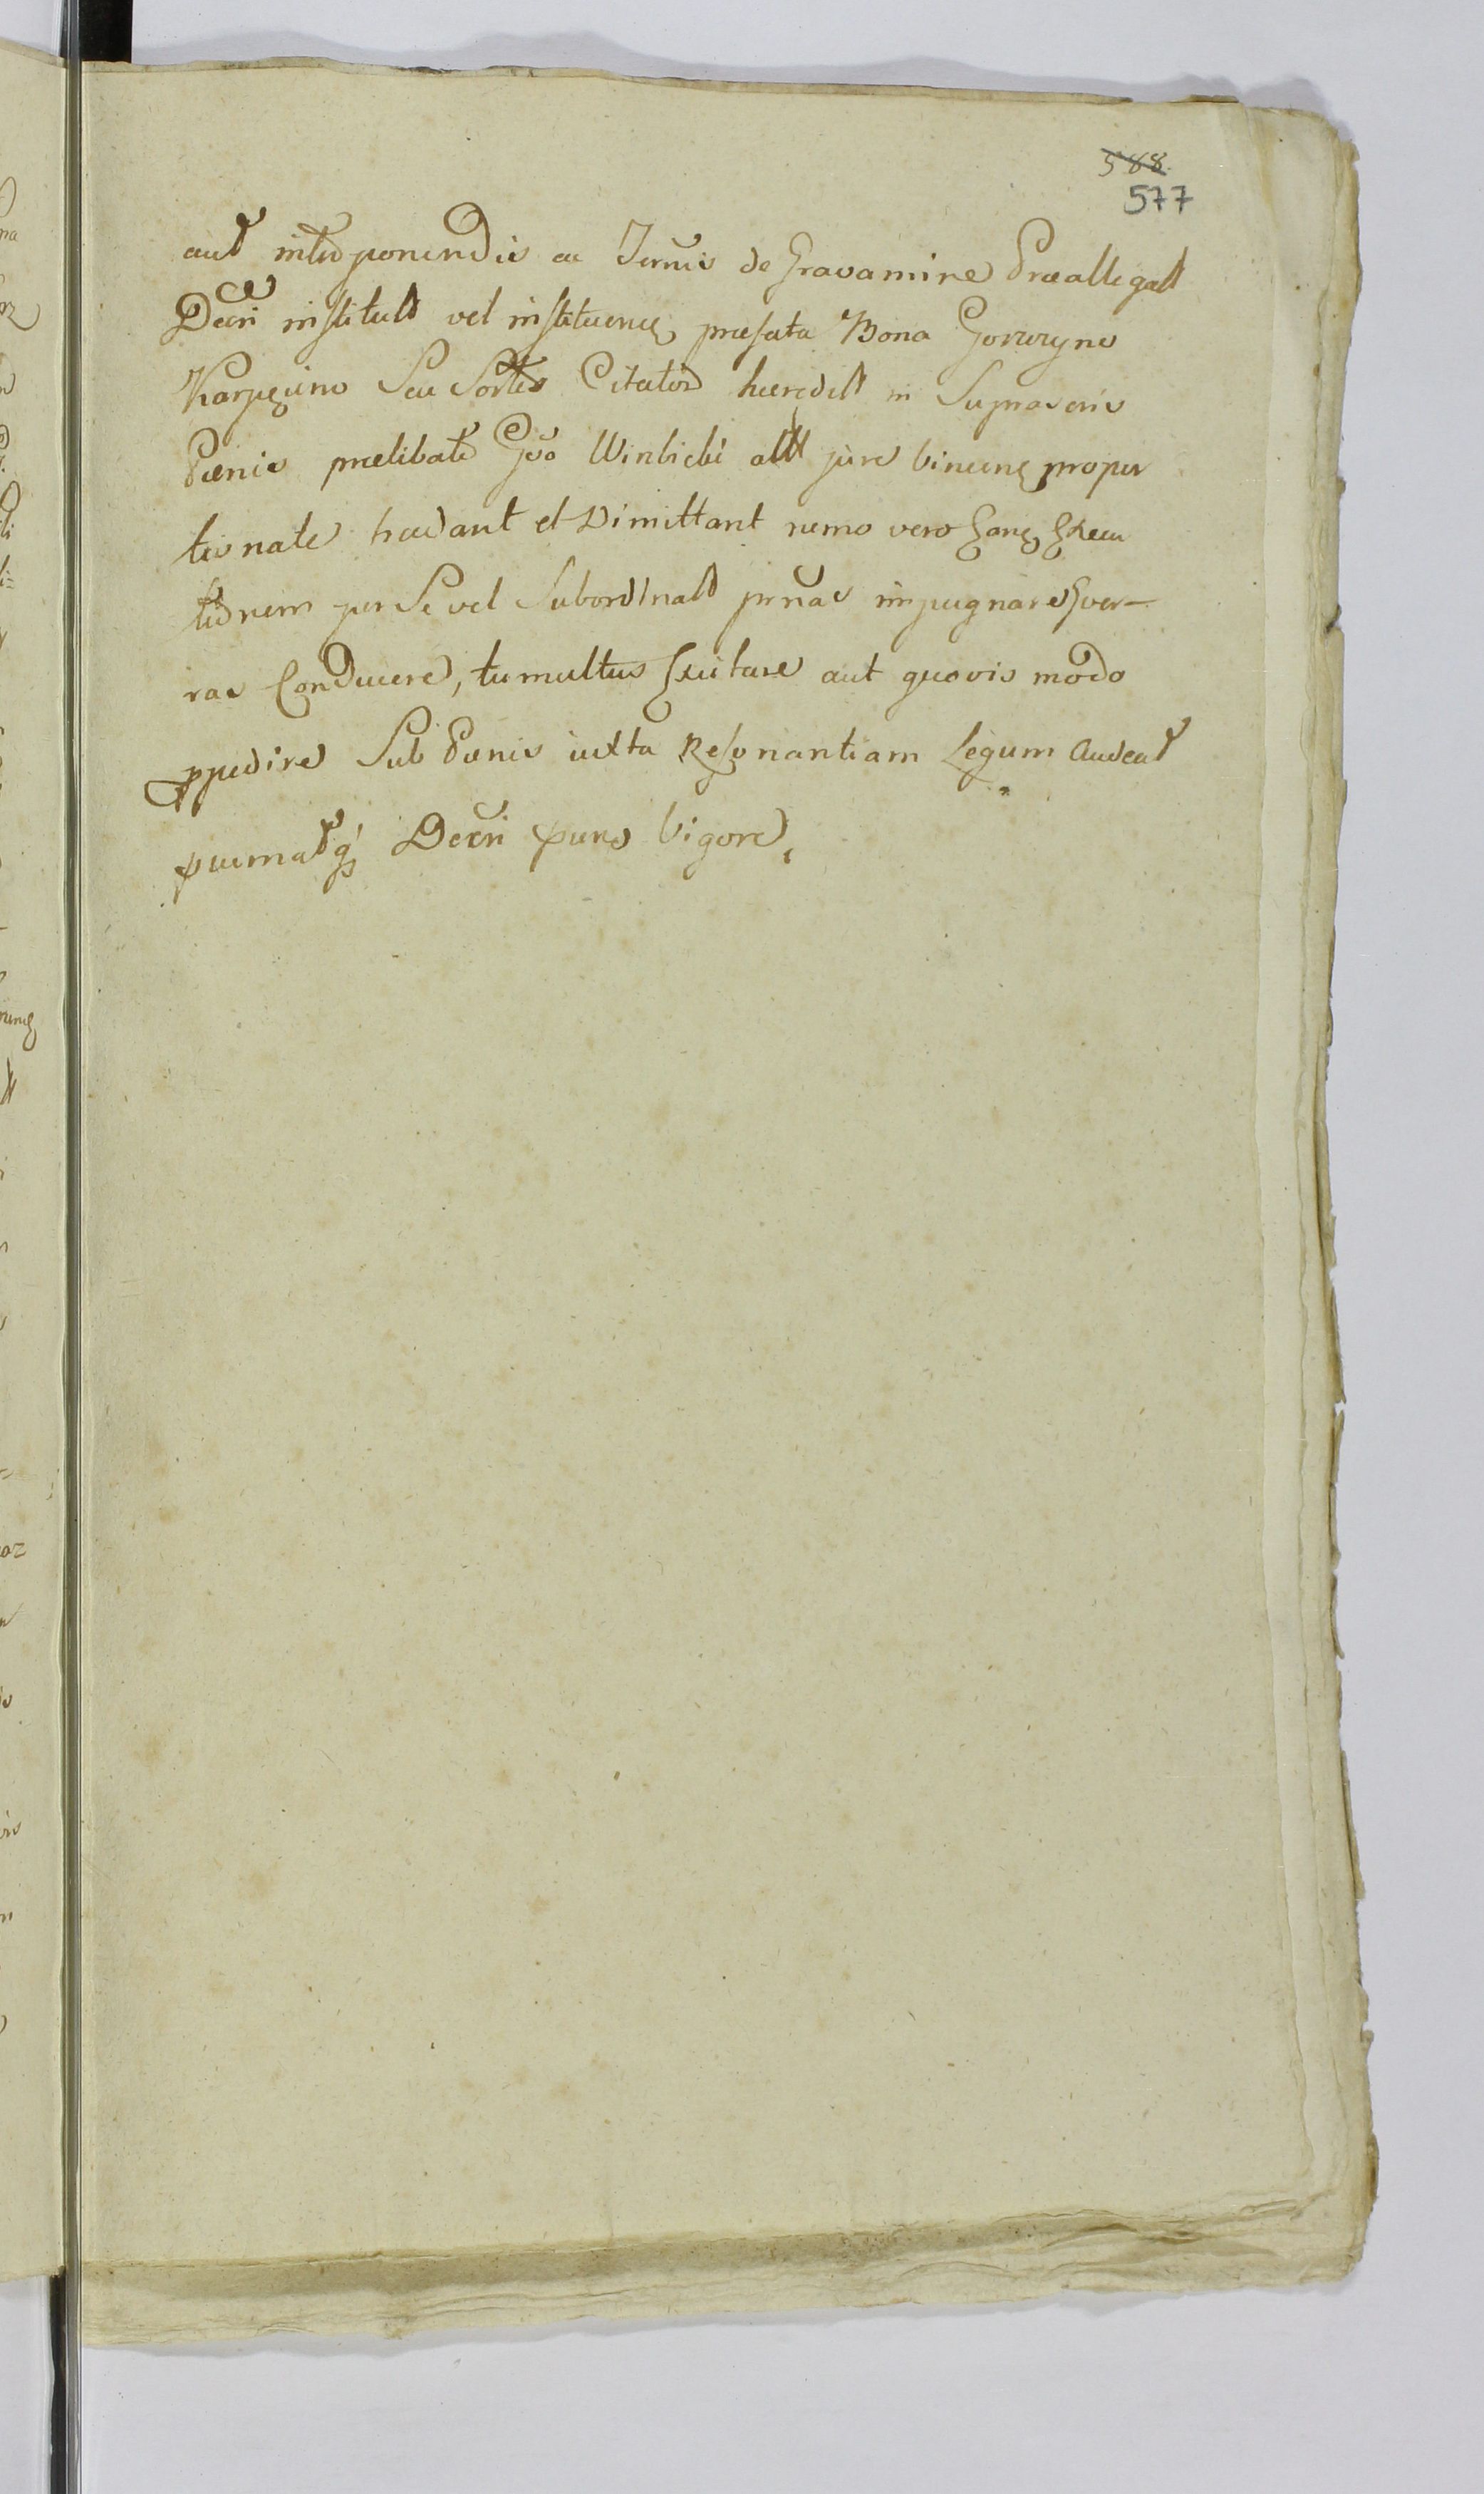 588
577
aut interponendis ac Termis de Gravamine Præallegatt
Decri institutt vel instituens præfata Bona Gorzuyno
Karpęcino Seu Sortes Citator hæreditt in Supravenis
Pænis prælibato Gso Winlicki allt jure vincens propor
tionate tradant et Dimittant nemo vero hanc Execu
tionem per Se vel Subordinatt prnas impugnare Guer-
ras Conducere, tumultus Excitare aut quovis modo
ppedire Sub Pænis iuxta Resonantiam Legum Audeat
Decri pnns Vigore,